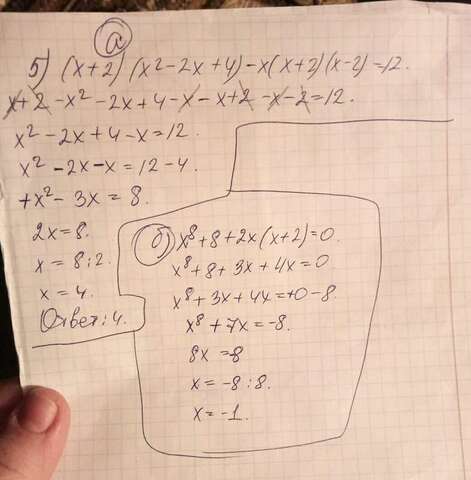 а
5) (x+2)(x²-2x+4)-x(x+2)(x-2)=12.
x+2-x²-2x+4-x-x+2-x-2=12.
x²-2x+4-x=12.
x²-2x-x=12-4.
+x²-3x=8.
2x=8.
x=8:2.
x=4.
Ответ: 4.
б) x⁸+8+2x(x+2)=0.
x⁸+8+3x+4x=0
x⁸+3x+4x=+0-8.
x⁸+7x=-8.
8x=-8
x=-8:8.
x=-1.